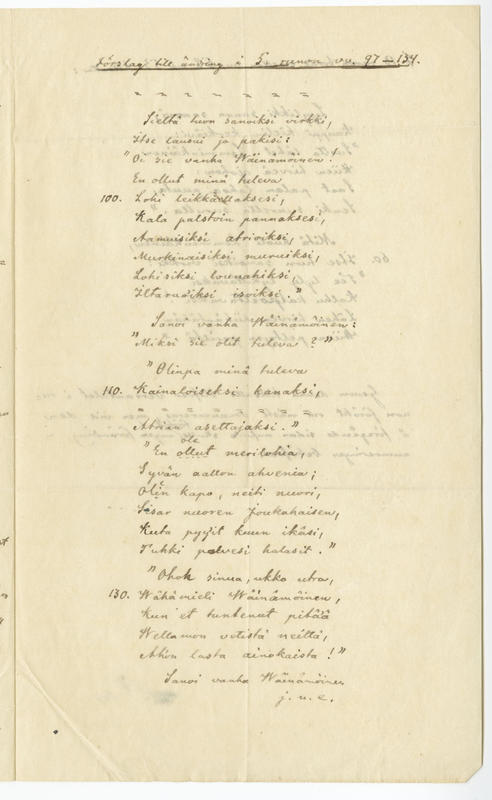 Förslag till ändring i 5. runon vv. 97–134.
" " " " " " "
Sieltä tuon sanoiksi virkki,
Itse lausui ja pakisi:
"Oi sie vanha Wäinämöinen!
En ollut minä tuleva
100. Lohi leikkaellaksesi,
Kala palstoin pannaksesi,
Aamuisiksi atrioiksi,
Murkinaisiksi muruiksi,
Lohisiksi lounahiksi,
Iltaruoiksi isoiksi."
Sanoi vanha Wäinämöinen:
"Miksi sie olit tuleva?"
"Olinpa minä tuleva
110. Kainaloiseksi kanaksi,
" " " " " " "
Atrian asettajaksi."
ole
"En ollut merilohia,
Syvän aallon ahvenia;
Olin kapo, neiti nuori,
Sisar nuoren Joukahaisen,
Kuta pyyit kuun ikäsi,
Puhki polvesi halasit."
"Ohoh sinua, ukko utra,
130. Wähämieli Wäinämöinen,
Kun et tuntenut pitää
Wellamon vetistä neittä,
Ahon lasta ainokaista!"
Sanoi vanha Wäinämöinen
j. n. e.